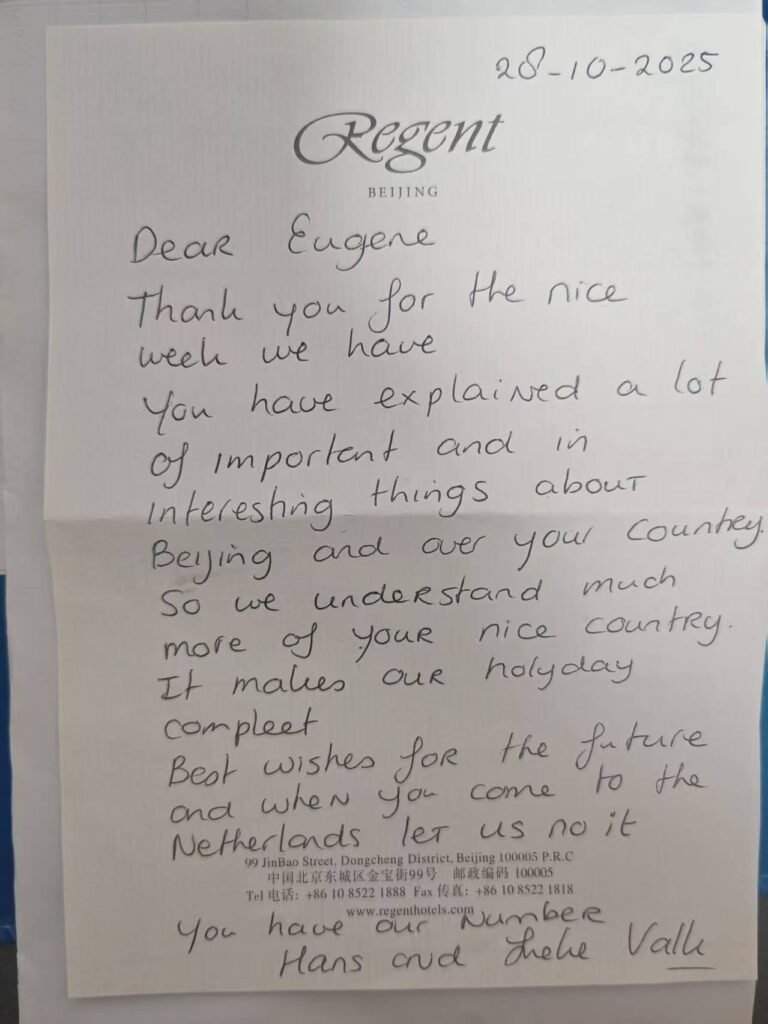 28-10-2025
Regent
BEIJING
Dear Eugene
Thank you for the nice
week we have
You have explained a lot
of important and in
interesting things about
Beijing and over your country.
So we understand much
more of your nice country.
It makes our holyday
compleet
Best wishes for the future
and when you come to the
Netherlands let us no it
99 JinBao Street, Dongcheng District, Beijing 100005 P.R.C
中国北京东城区金宝街99号 邮政编码 100005
Tel 电话: +86 10 8522 1888 Fax 传真: +86 10 8522 1818
www.regenthotels.com
You have our number
Hans and Valk